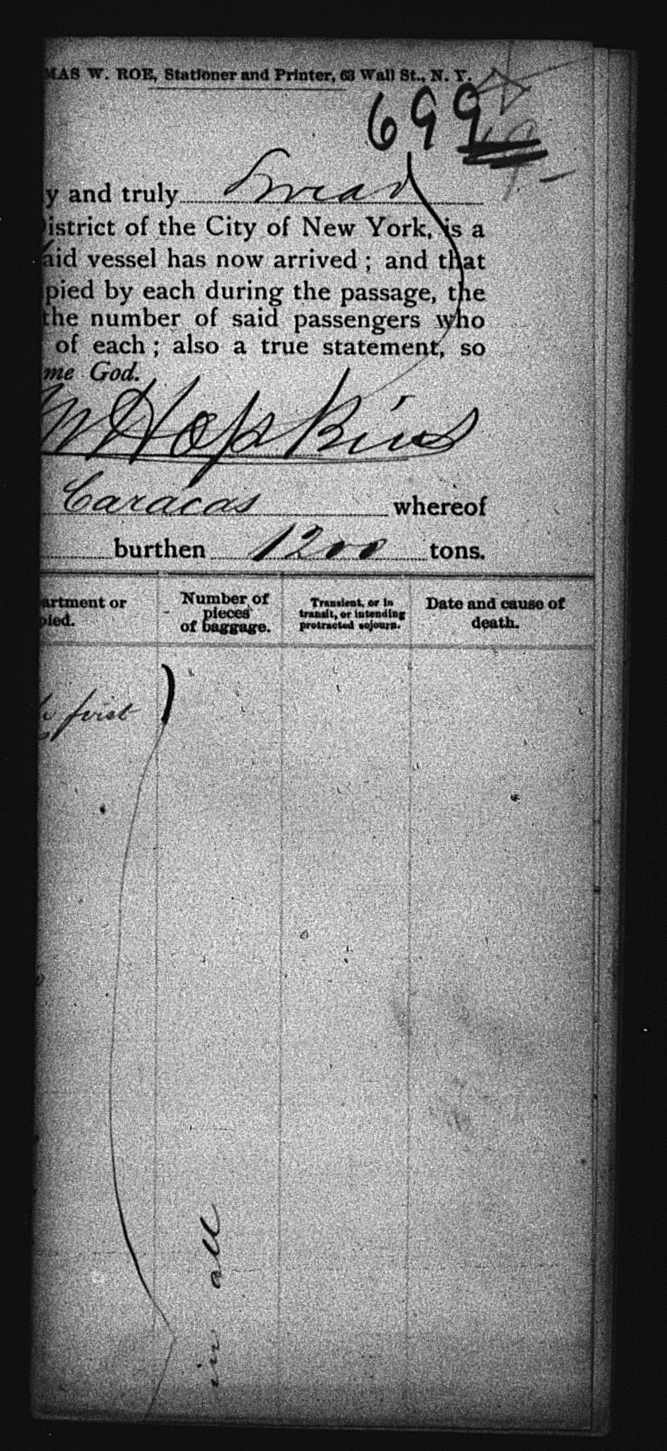 MAS W. ROE, Stationer and Printer, 63 Wall St., N. Y.
699
y and truly swear
District of the City of New York, is a
aid vessel has now arrived; and that
pied by each during the passage, the
the number of said passengers who
of each; also a true statement, so
me God.
Hopkins
Caracas whereof
burthen 1200 tons.
artment or
pied.
Number of
pieces
of baggage.
Transient, or in
transit, or intending
protracted sojourn.
Date and cause of
death.
first
in all